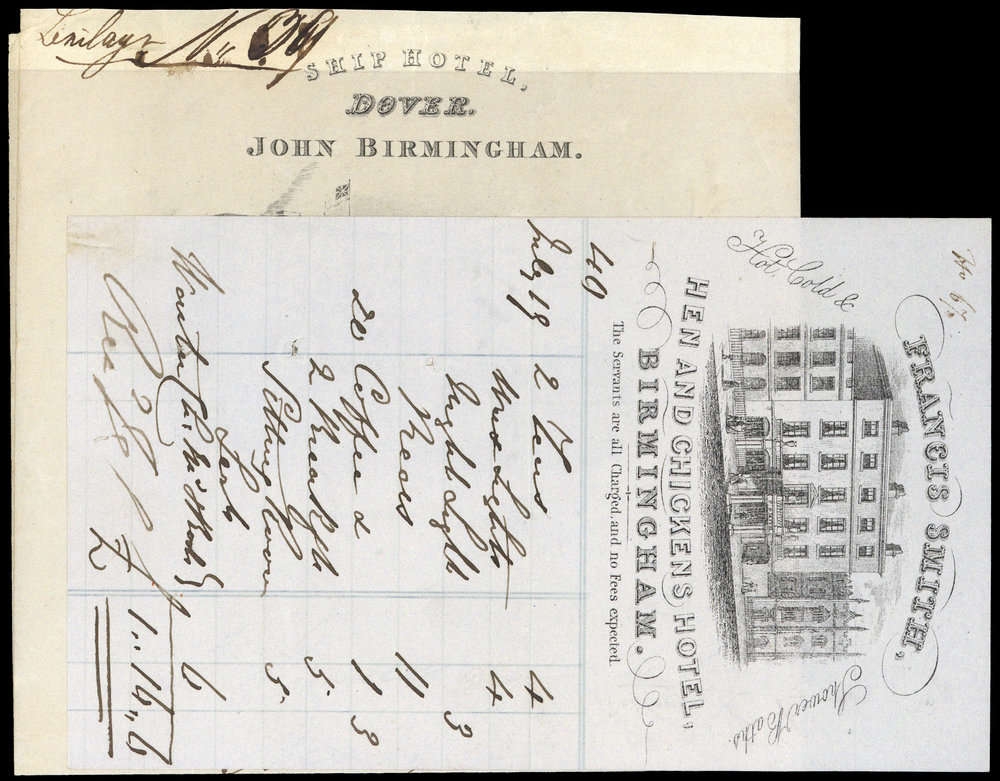 No. 39
SHIP HOTEL,
DOVER.
JOHN BIRMINGHAM.
No 67
FRANCIS SMITH,
Hot, Cold &
Shower Baths.
HEN AND CHICKENS HOTEL,
BIRMINGHAM.
The Servants are all Charged, and no Fees expected.
49
July 19 2 Teas 4
Wax Lights 4
Night Light 3
Rooms 11
20 Coffee 1 3
2 Breakfst 5
Sitting Room 5
6
1 .. 16 .. 6